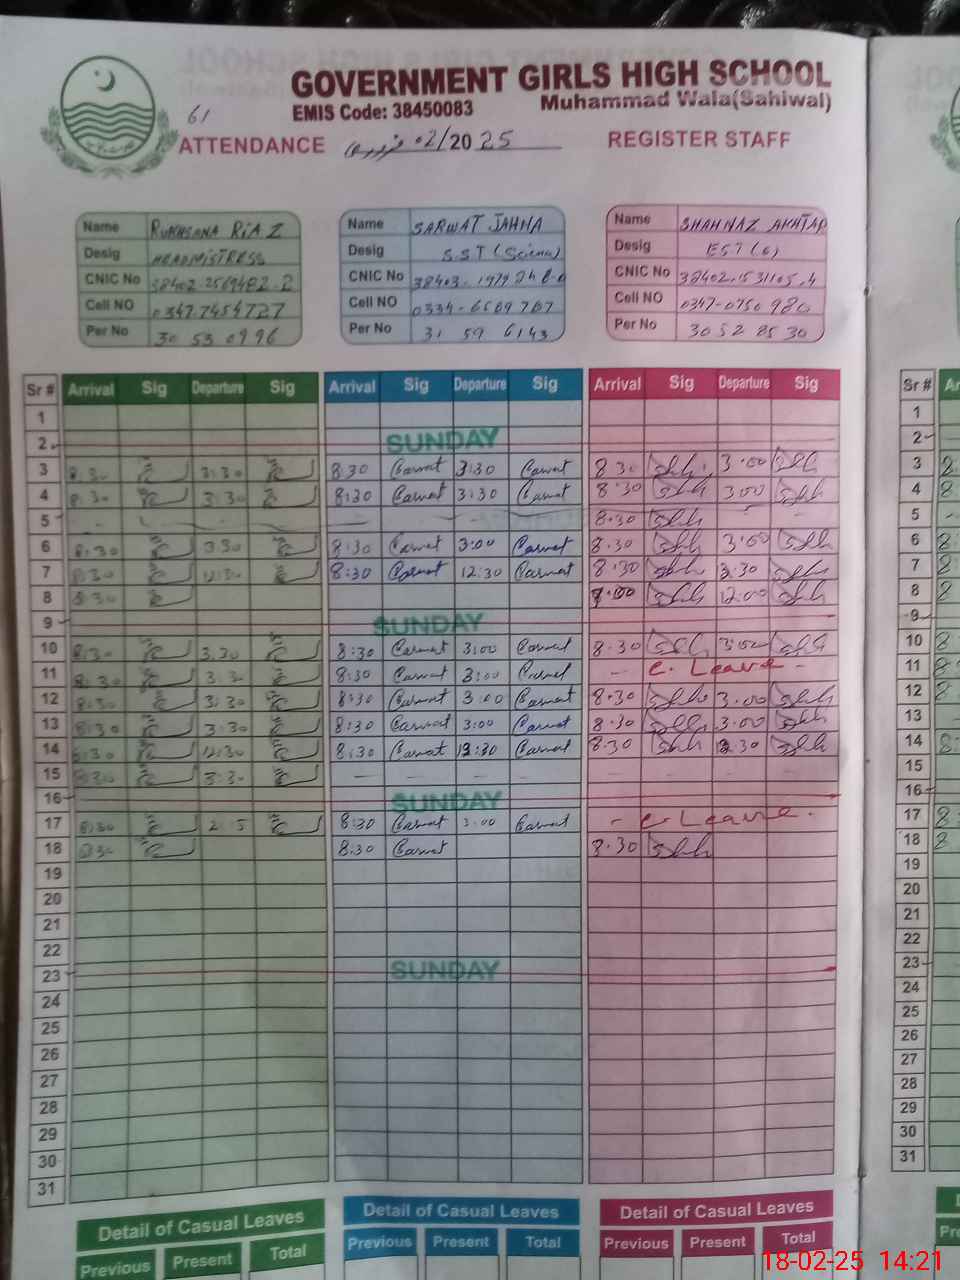 GOVERNMENT GIRLS HIGH SCHOOL
EMIS Code: 38450083 Muhammad Wala(Sahiwal)
61
ATTENDANCE فروری 02/2025 REGISTER STAFF
Name RUKHSANA RIAZ
Desig HEADMISTRESS
CNIC No 38402-2569482-2
Cell NO 0347-7454727
Per No 30 53 0996
Name SARWAT JAHNA
Desig S.S.T (Science)
CNIC No
Cell NO 0334-6569767
Per No 31 59 6143
Name SHAHNAZ AKHTAR
Desig EST (G)
CNIC No 38402-1531105-4
Cell NO 0347-0750980
Per No 30 52 85 30
Sr # Arrival Sig Departure Sig Arrival Sig Departure Sig Arrival Sig Departure Sig
1
2 SUNDAY
3 8:30 3:30 8:30 Sarwat 3:30 Sarwat 8:30 3:00
4 8:30 3:30 8:30 Sarwat 3:30 Sarwat 8:30 3:00
5 8:30
6 8:30 3:30 8:30 Sarwat 3:00 Sarwat 8:30 3:00
7 8:30 12:30 8:30 Sarwat 12:30 Sarwat 8:30
8 8:30 12:00
9 SUNDAY
10 8:30 3:30 8:30 Sarwat 3:00 Sarwat 8:30 3:00
11 8:30 3:30 8:30 Sarwat 3:00 Sarwat - C. Leave -
12 8:30 3:30 8:30 Sarwat 3:00 Sarwat 8:30 3:00
13 8:30 3:30 8:30 Sarwat 3:00 Sarwat 8:30 3:00
14 8:30 12:30 8:30 Sarwat 12:30 Sarwat 8:30 12:30
15 8:30 3:30 - - - -
16 SUNDAY
17 8:30 2:15 8:30 Sarwat 3:00 Sarwat - C. Leave -
18 8:30 8:30 Sarwat 8:30
19
20
21
22
23 SUNDAY
24
25
26
27
28
29
30
31
Detail of Casual Leaves Detail of Casual Leaves Detail of Casual Leaves
Previous Present Total Previous Present Total Previous Present Total
Sr #
1
2
3
4
5
6
7
8
9
10
11
12
13
14
15
16
17
18
19
20
21
22
23
24
25
26
27
28
29
30
31
18-02-25 14:21